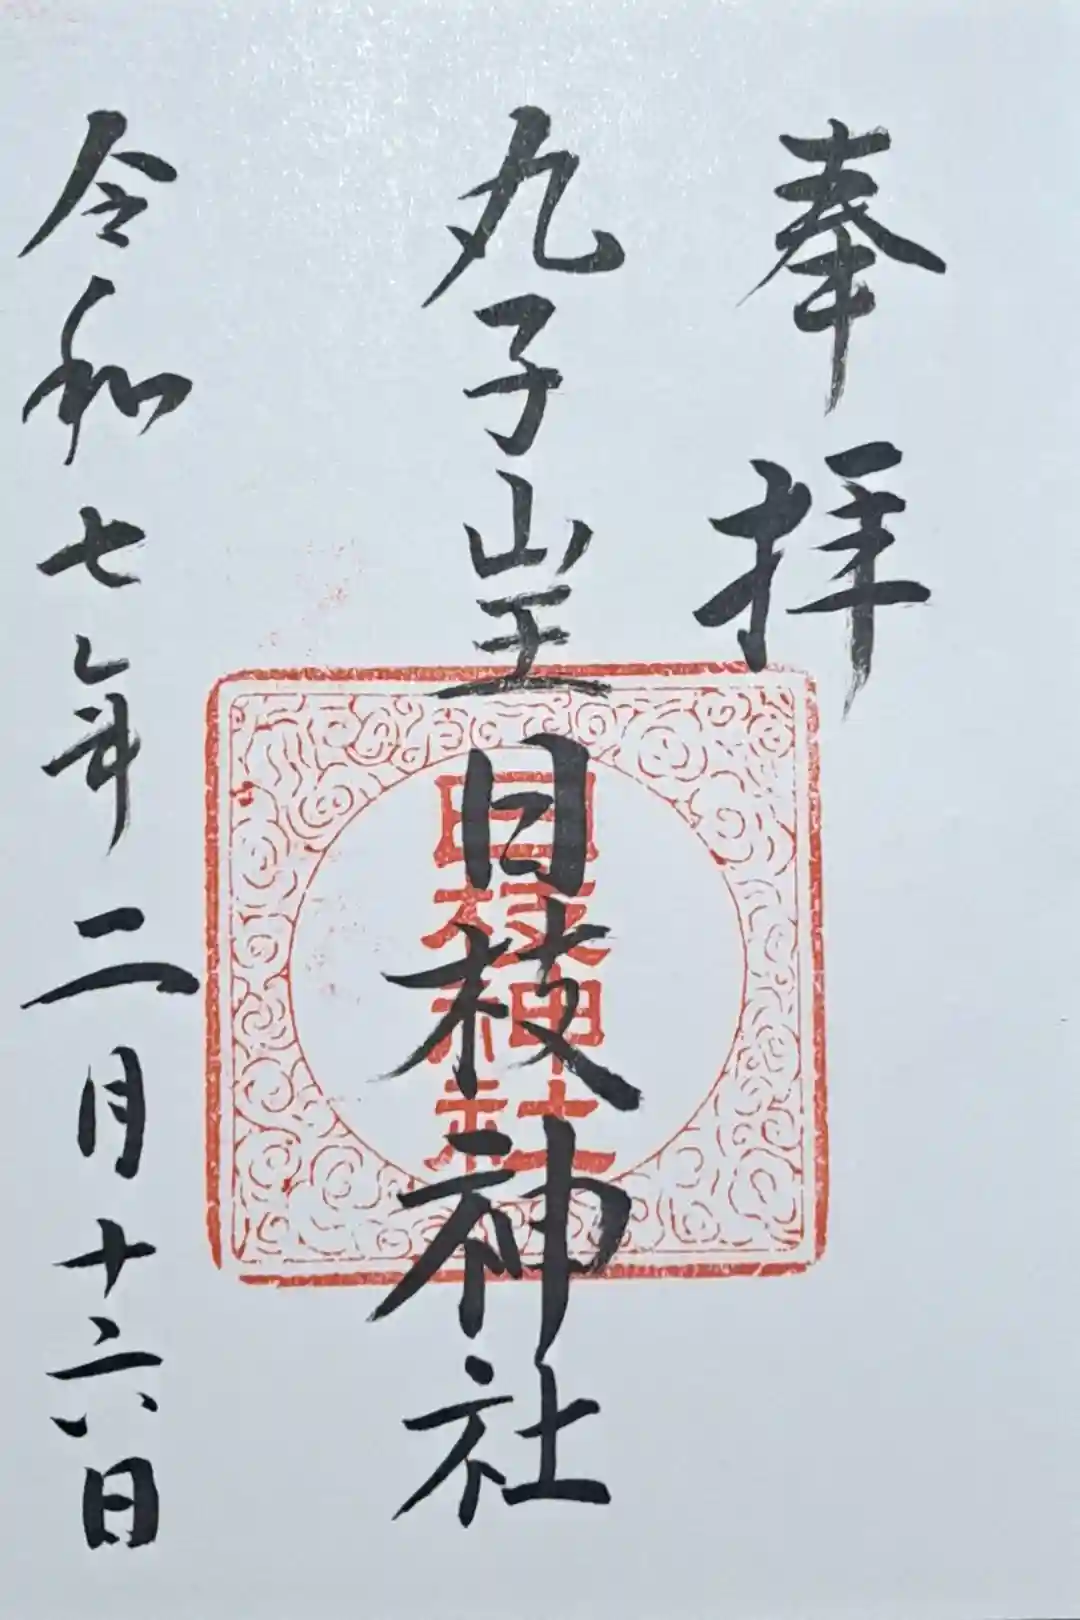 奉拝
丸子山王
日枝神社
日枝神社
令和七年二月十六日